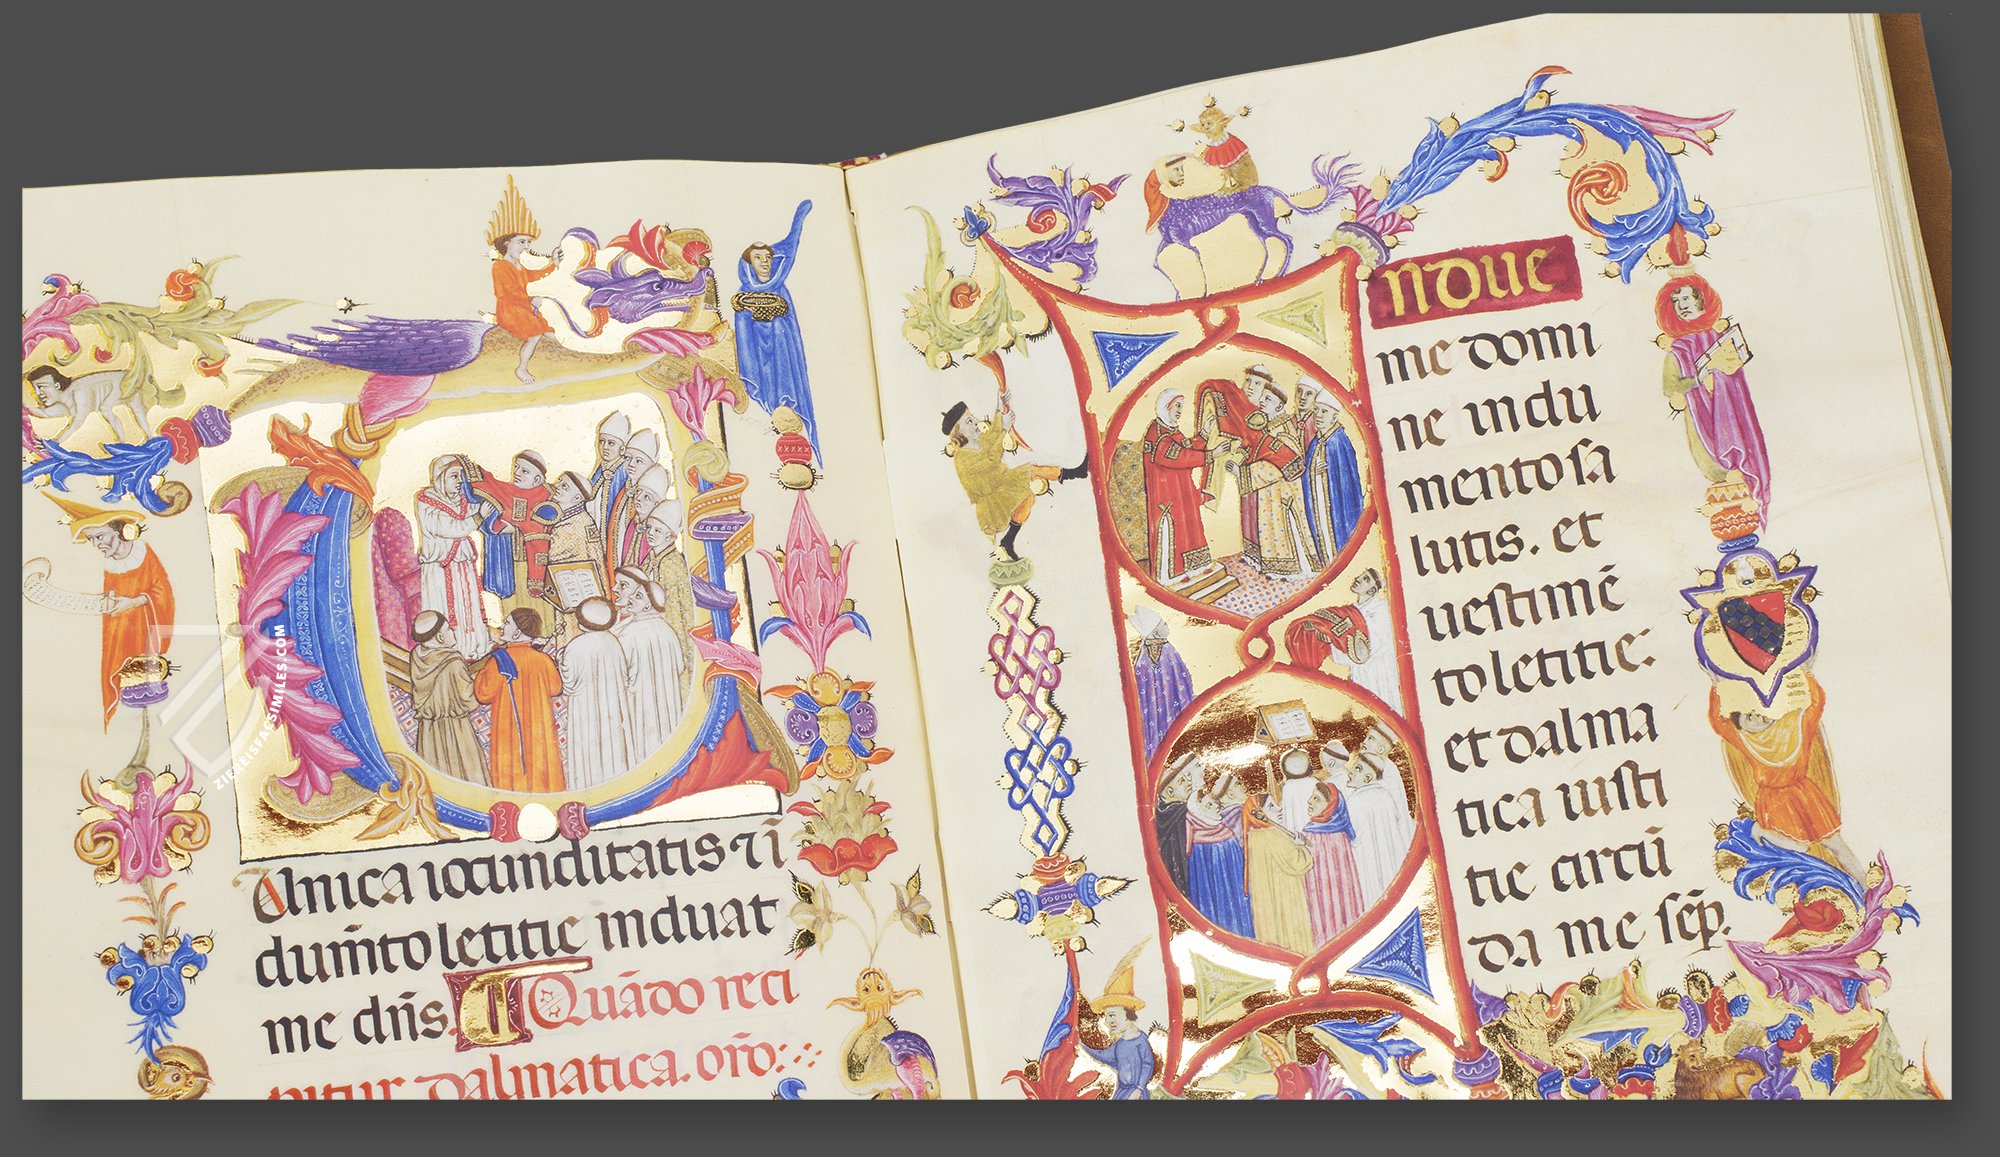 Unica iocunditatis ⁊ ī
dum̄to letitie induat
me dn̄s. Quādo reci
pitur dalmatica. or̄o:
ndue
me domi
ne indu
mento ſa
lutis. et
ueſtimē
to letitie:
et dalma
tica iuſti
tie circū
da me ſēp.
ZIEREISFACSIMILES.COM